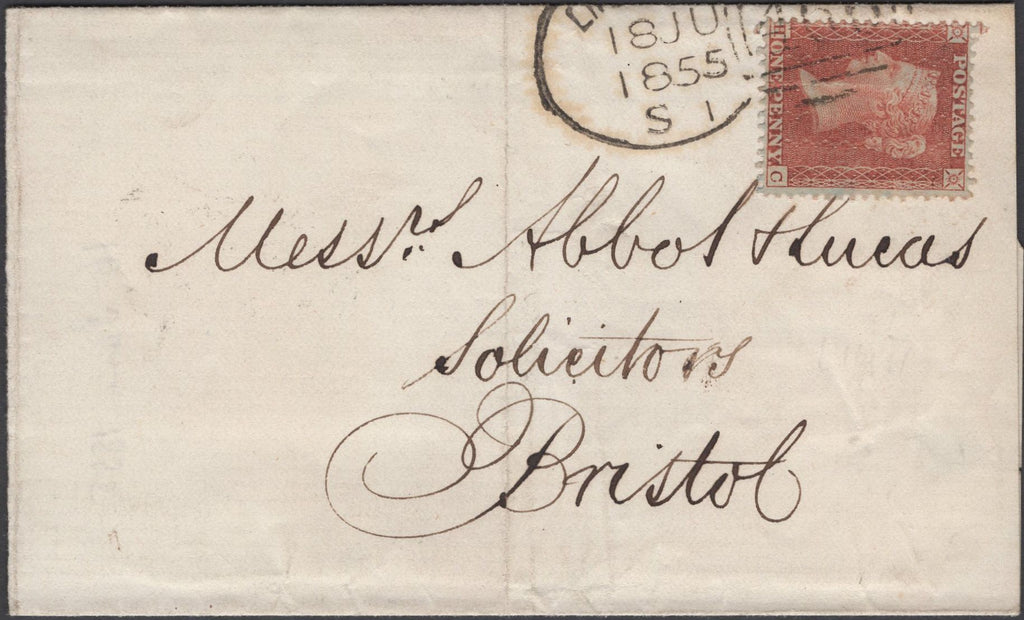 18 JU
1855
S 1
POSTAGE
ONE PENNY
H C
Messrs. Abbot & Lucas
Solicitors
Bristol